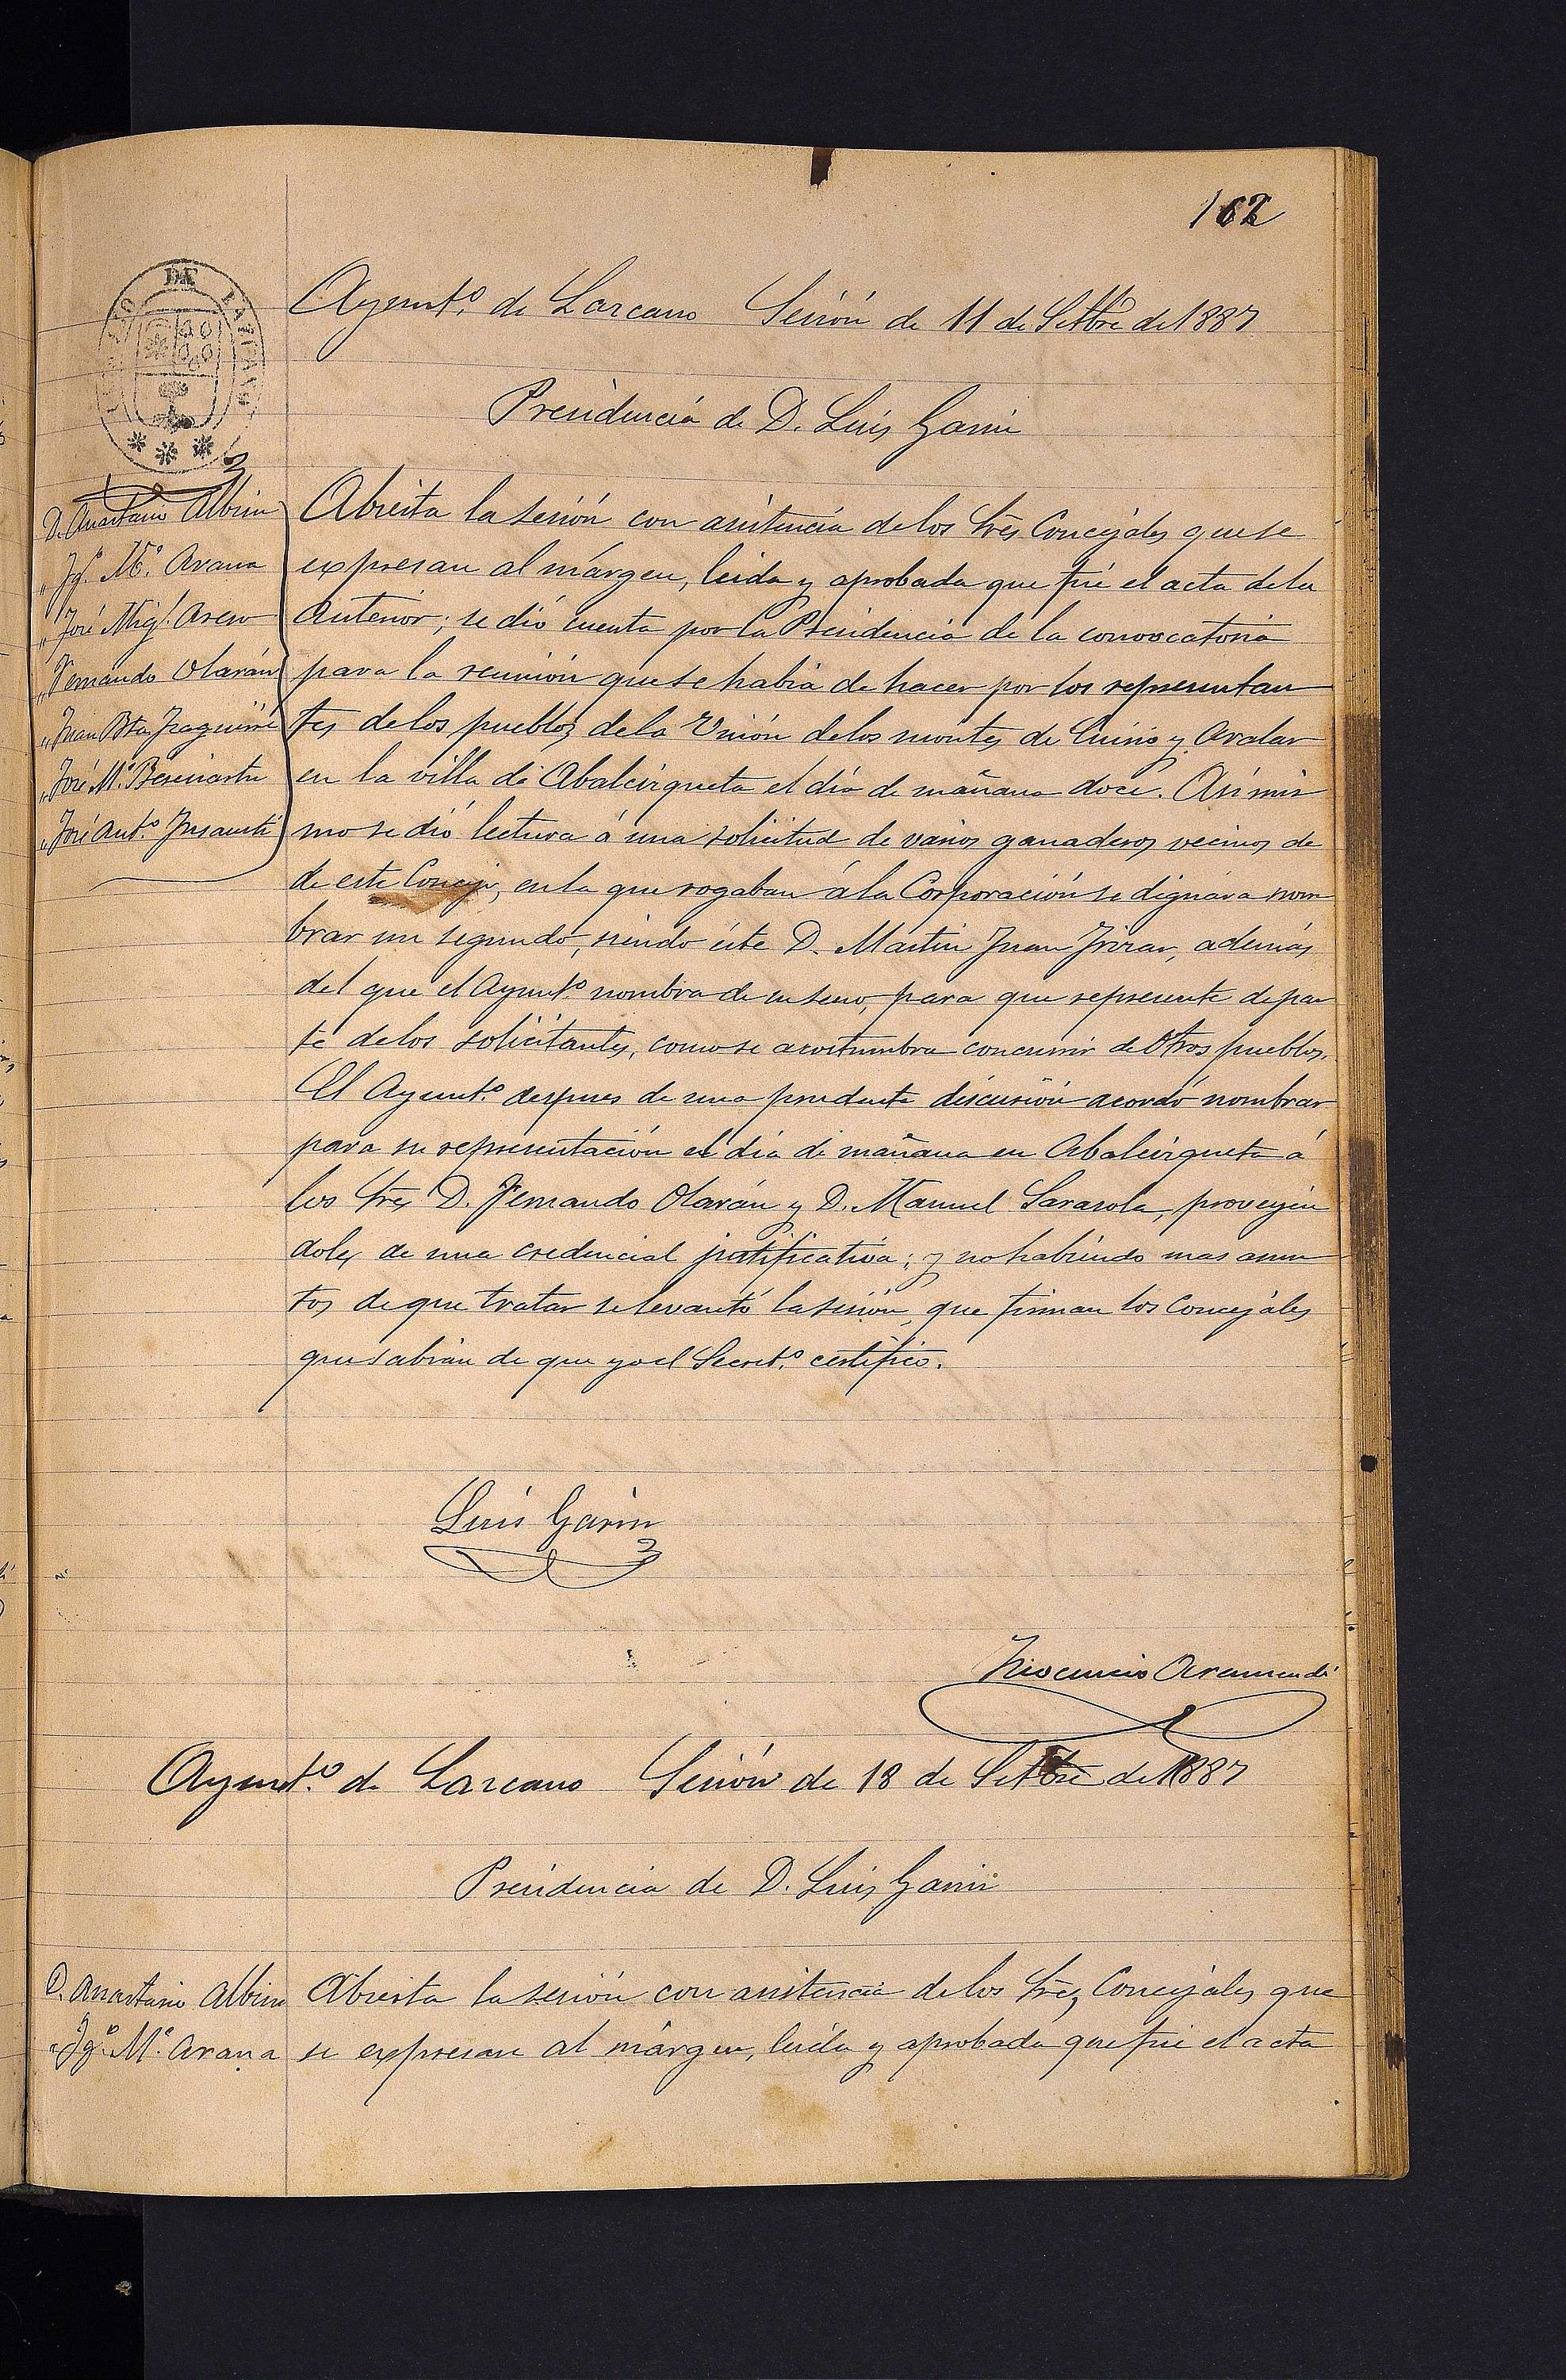 162
DE LAZCANO
Ayunt.º de Lazcano Sesión de 11 de Setbre de 1887
Presidencia de D. Luis Garin
D. Anastasio Albisu
„ Ig.º M.ª Arana
„ José Mig.l Areso
„ Fernando Olarán
„ Juan Bta Izaguirre
„ José M.ª
„ José Ant.º Insausti
Abierta la sesión con asistencia de los Sres Concejales que se
expresan al márgen, leida y aprobada que fué el acta de la
anterior; se dió cuenta por la Presidencia de la convocatoria
para la reunión que se habia de hacer por los representan
tes de los pueblos de la Unión de los montes de Enirio y Aralar
en la villa de Abalcirqueta el dia de mañana doce. Asimis
mo se dió lectura á una solicitud de varios ganaderos vecinos de
de este Concejo, en la que rogaban á la Corporación se dignara nom
brar un segundo, siendo éste D. Martin Juan Irizar, además
del que el Ayunt.º nombra de su seno, para que represente de par
te de los solicitantes, como se acostumbra concurrir de otros pueblos.
El Ayunt.º despues de una prudente discusión acordó nombrar
para su representación el dia de mañana en Abalcirqueta á
los Sres D. Fernando Olarán y D. Manuel Sarasola, proveyén
doles de una credencial justificativa; y no habiendo mas asun
tos de que tratar se levantó la sesión, que firman los Concejales
que sabian de que yo el Secret.º certifico.
Luis Garin
Inocencio Aramendi
Ayunt.º de Lazcano Sesión de 18 de Setbre de 1887
Presidencia de D. Luis Garin
D. Anastasio Albisu
„ Ig.º M.ª Arana
Abierta la sesión con asistencia de los Sres Concejales que
se expresan al márgen, leida y aprobada que fué el acta